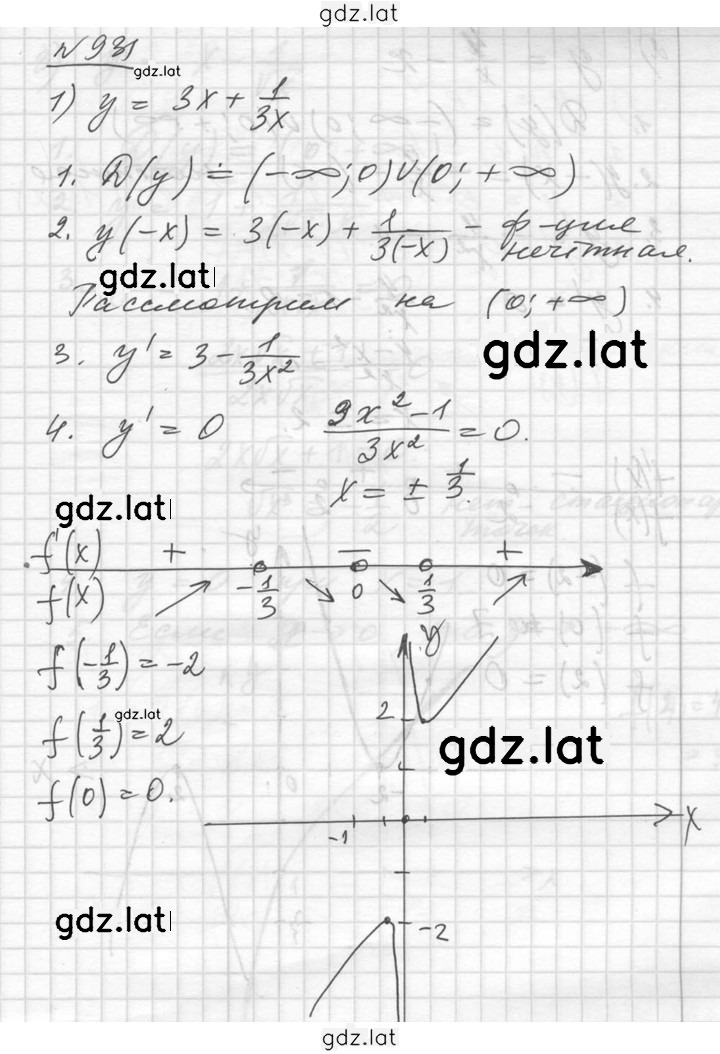 gdz.lat
№931
gdz.lat
1) y = 3x + 1/3x
1. D(y) = (-∞; 0) ∪ (0; +∞)
2. y(-x) = 3(-x) + 1/3(-x) - ф-ция
нечётная.
gdz.lat
Рассмотрим на (0; +∞)
3. y' = 3 - 1/3x²
gdz.lat
4. y' = 0 9x²-1/3x² = 0.
x = ± 1/3.
gdz.lat
f'(x) + - +
f(x) -1/3 0 1/3
y
f(-1/3) = -2
gdz.lat
2
f(1/3) = 2
gdz.lat
f(0) = 0.
x
-1
gdz.lat
-2
gdz.lat